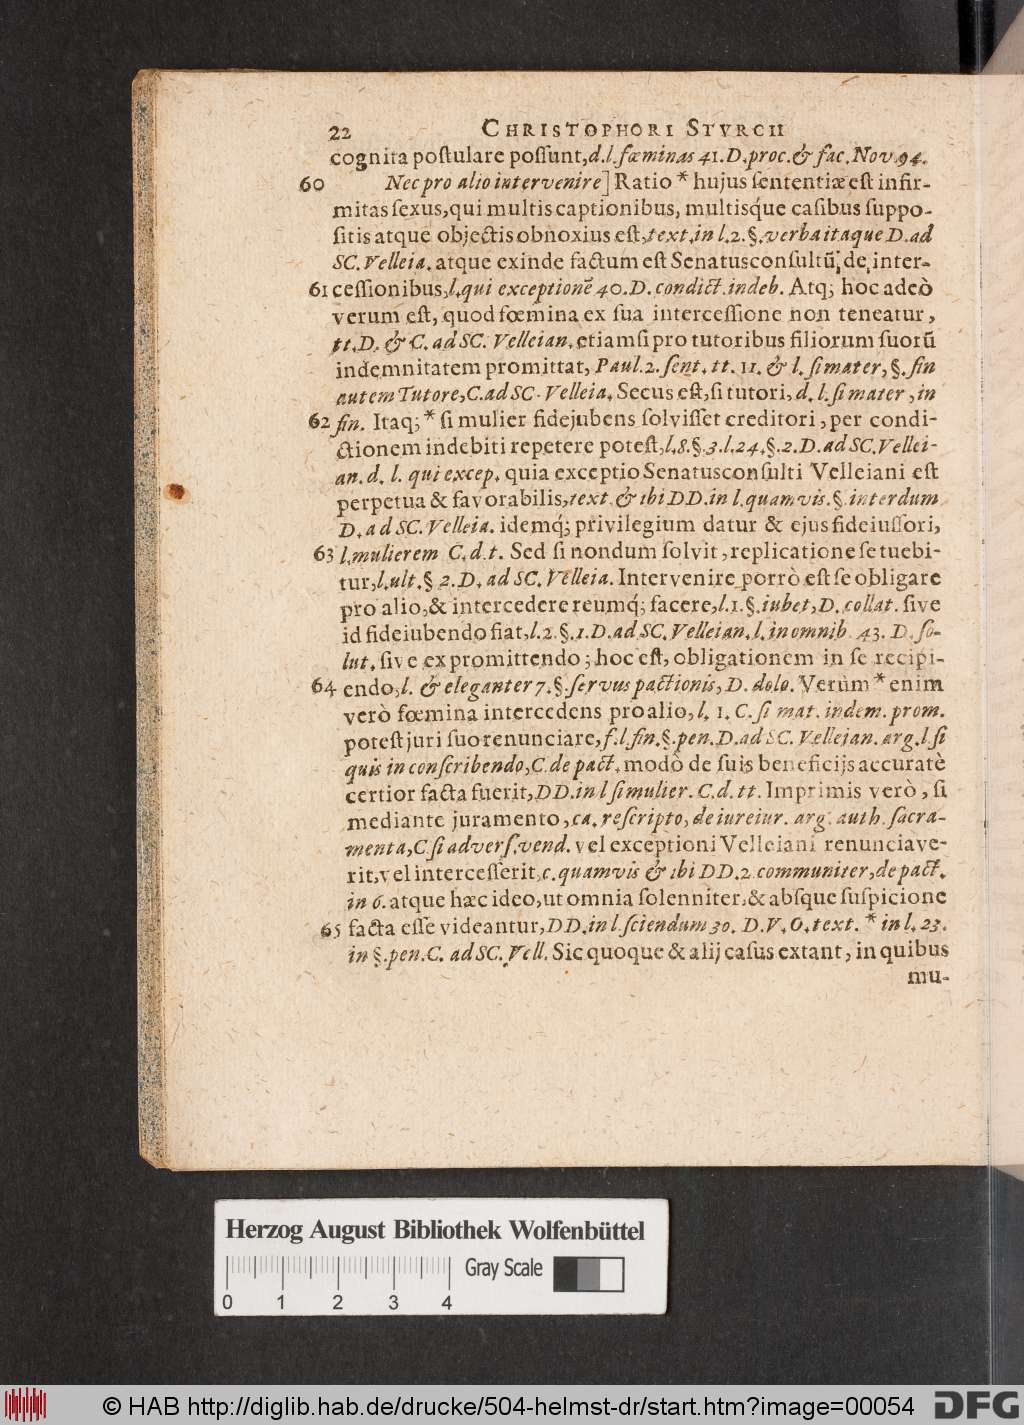 22 CHRISTOPHORI STVRCII
cognita poſtulare poſſunt, d.l. fœminas 41. D. proc. & fac. Nov. 94.
60 Nec pro alio intervenire] Ratio * hujus ſententiæ eſt infir-
mitas ſexus, qui multis captionibus, multisq́ue caſibus ſuppo-
ſitis atque objectis obnoxius eſt, text. in l. 2. §. verba itaque D. ad
SC. Velleia. atque exinde factum eſt Senatusconſultũ de inter-
61 ceſſionibus, l. qui exceptionẽ 40. D. condict. indeb. Atq; hoc adeò
verum eſt, quod fœmina ex ſua interceſſione non teneatur,
tt. D. & C. ad SC. Velleian. etiamſi pro tutoribus filiorum ſuorũ
indemnitatem promittat, Paul. 2. ſent. tt. 11. & l. ſi mater, §. fin
autem Tutore, C. ad SC. Velleia. Secus eſt, ſi tutori, d. l. ſi mater, in
62 fin. Itaq; * ſi mulier fidejubens ſolviſſet creditori, per condi-
ctionem indebiti repetere poteſt, l. 8. §. 3. l. 24. §. 2. D. ad SC. Vellei-
an. d. l. qui excep. quia exceptio Senatusconſulti Velleiani eſt
perpetua & favorabilis, text. & ibi DD. in l. quamvis. §. interdum
D. ad SC. Velleia. idemq́; privilegium datur & ejus fideiuſſori,
63 l. mulierem C. d. t. Sed ſi nondum ſolvit, replicatione ſe tuebi-
tur, l. ult. § 2. D. ad SC. Velleia. Intervenire porrò eſt ſe obligare
pro alio, & intercedere reumq́; facere, l. 1. §. iubet, D. collat. ſive
id fideiubendo fiat, l. 2. §. 1. D. ad SC. Velleian. l. in omnib. 43. D. ſo-
lut. ſive expromittendo; hoc eſt, obligationem in ſe recipi-
64 endo, l. & eleganter 7. §. ſervus pactionis, D. dolo. Verùm * enim
verò fœmina intercedens pro alio, l. 1. C. ſi mat. indem. prom.
poteſt juri ſuo renunciare, f. l. fin. §. pen. D. ad SC. Vellejan. arg. l. ſi
quis in conſcribendo, C. de pact. modò de ſuis beneficijs accuratè
certior facta fuerit, DD. in l ſi mulier. C. d. tt. Imprimis verò, ſi
mediante juramento, ca. reſcripto, de iureiur. arg. auth. ſacra-
menta, C ſi adverſ. vend. vel exceptioni Velleiani renunciave-
rit, vel interceſſerit, c. quamvis & ibi DD. 2 communiter, de pact.
in 6. atque hæc ideo, ut omnia ſolenniter, & absque ſuſpicione
65 facta eſſe videantur, DD. in l. ſciendum 30. D. V. O. text. * in l. 23.
in §. pen. C. ad SC. Vell. Sic quoque & alij caſus extant, in quibus
mu-
Herzog August Bibliothek Wolfenbüttel
Gray Scale
0 1 2 3 4
© HAB http://diglib.hab.de/drucke/504-helmst-dr/start.htm?image=00054 DFG